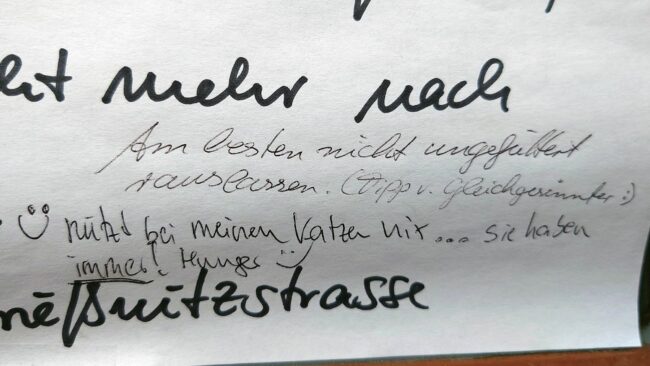 mehr nach
Am besten nicht ungefüttert
rauslassen. (Tipp v. Gleichgesinnter :)
nützt bei meinen Katzen nix... sie haben
immer! Hunger
strasse